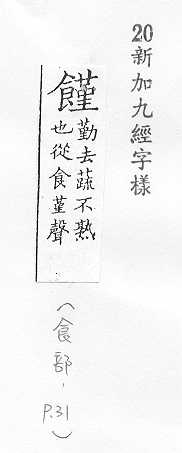 20新加九經字樣
饉勤去蔬不熟
也從食堇聲
(食部,
P.31)